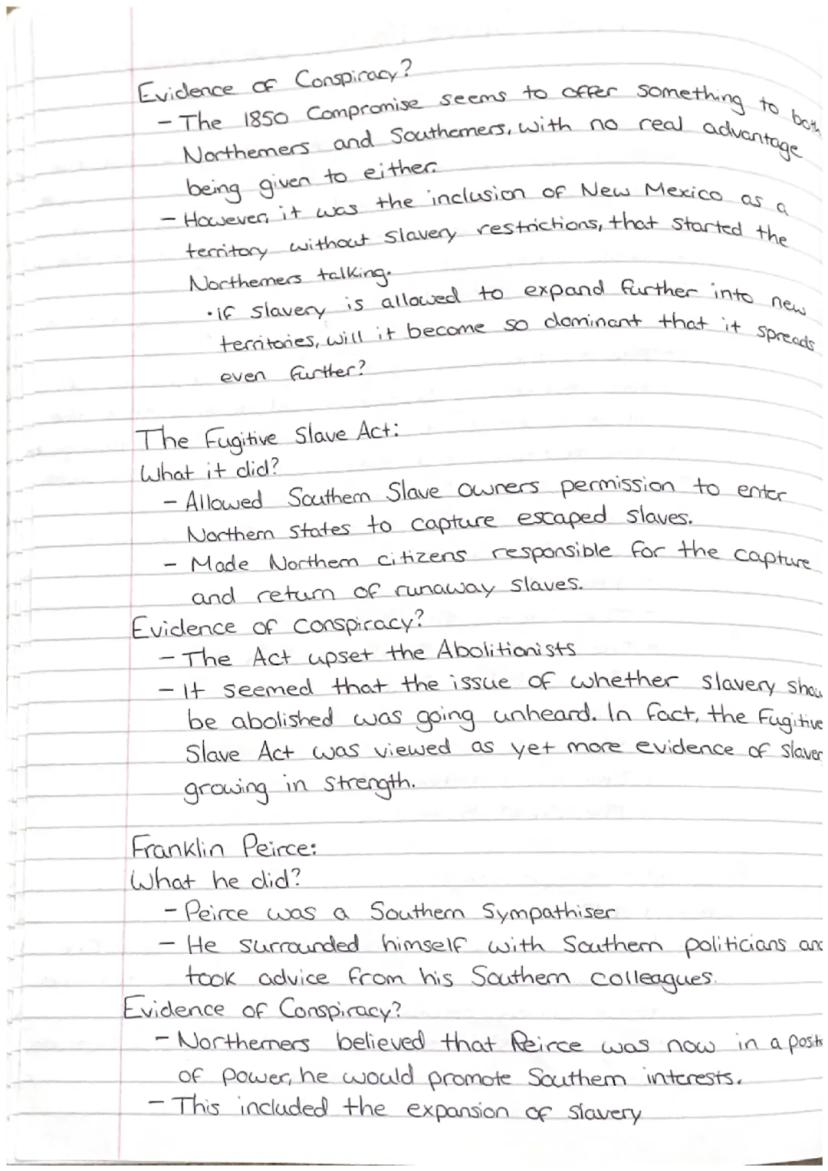 Evidence of Conspiracy?
- The 1850 Compromise seems to offer something to both
Northerners and Southerners, with no real advantage
being given to either.
- However, it was the inclusion of New Mexico as a
territory without slavery restrictions, that started the
Northerners talking.
• if slavery is allowed to expand further into new
territories, will it become so dominant that it spreads
even further?
The Fugitive Slave Act:
What it did?
- Allowed Southern Slave owners permission to enter
Northern states to capture escaped slaves.
- Made Northern citizens responsible for the capture
and return of runaway slaves.
Evidence of conspiracy?
- The Act upset the Abolitionists
- It seemed that the issue of whether slavery shou
be abolished was going unheard. In fact, the Fugitive
Slave Act was viewed as yet more evidence of slaver
growing in strength.
Franklin Peirce:
What he did?
- Peirce was a Southern Sympathiser
- He surrounded himself with Southern politicians and
took advice from his Southern colleagues.
Evidence of Conspiracy?
- Northerners believed that Peirce was now in a posit
of power, he would promote Southern interests.
- This included the expansion of slavery